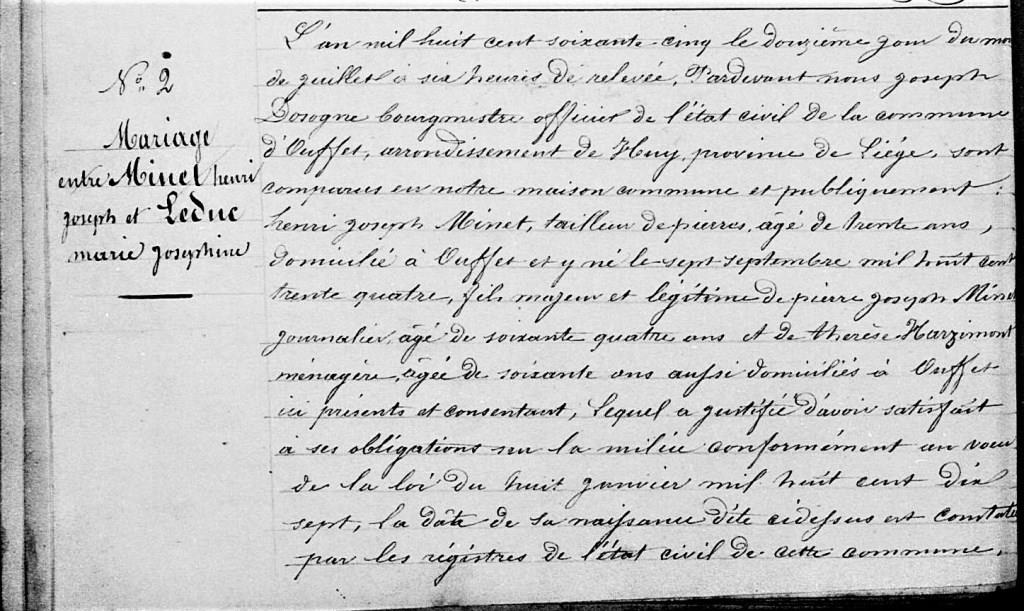 N° 2
Mariage
entre Minet henri
joseph et Leduc
marie josephine
L'an mil huit cent soixante-cinq le douzième jour du mois
de juillet à six heures de relevée, Pardevant nous joseph
Dosogne bourgmestre officier de l'état civil de la commune
d'Ouffet, arrondissement de Huy, province de Liége, sont
comparus en notre maison commune et publiquement :
henri joseph Minet, tailleur de pierres, âgé de trente ans,
domicilié à Ouffet et y né le sept septembre mil huit cent
trente quatre, fils majeur et légitime de pierre joseph Minet
journalier, âgé de soixante quatre ans et de thérèse Harzimont
ménagère, âgée de soixante ans aussi domiciliés à Ouffet
ici présents et consentant, lequel a justifié d'avoir satisfait
à ses obligations sur la milice conformément au voeu
de la loi du huit janvier mil huit cent dix
sept, la date de sa naissance dite cidessus est constatée
par les régistres de l'état civil de cette commune,